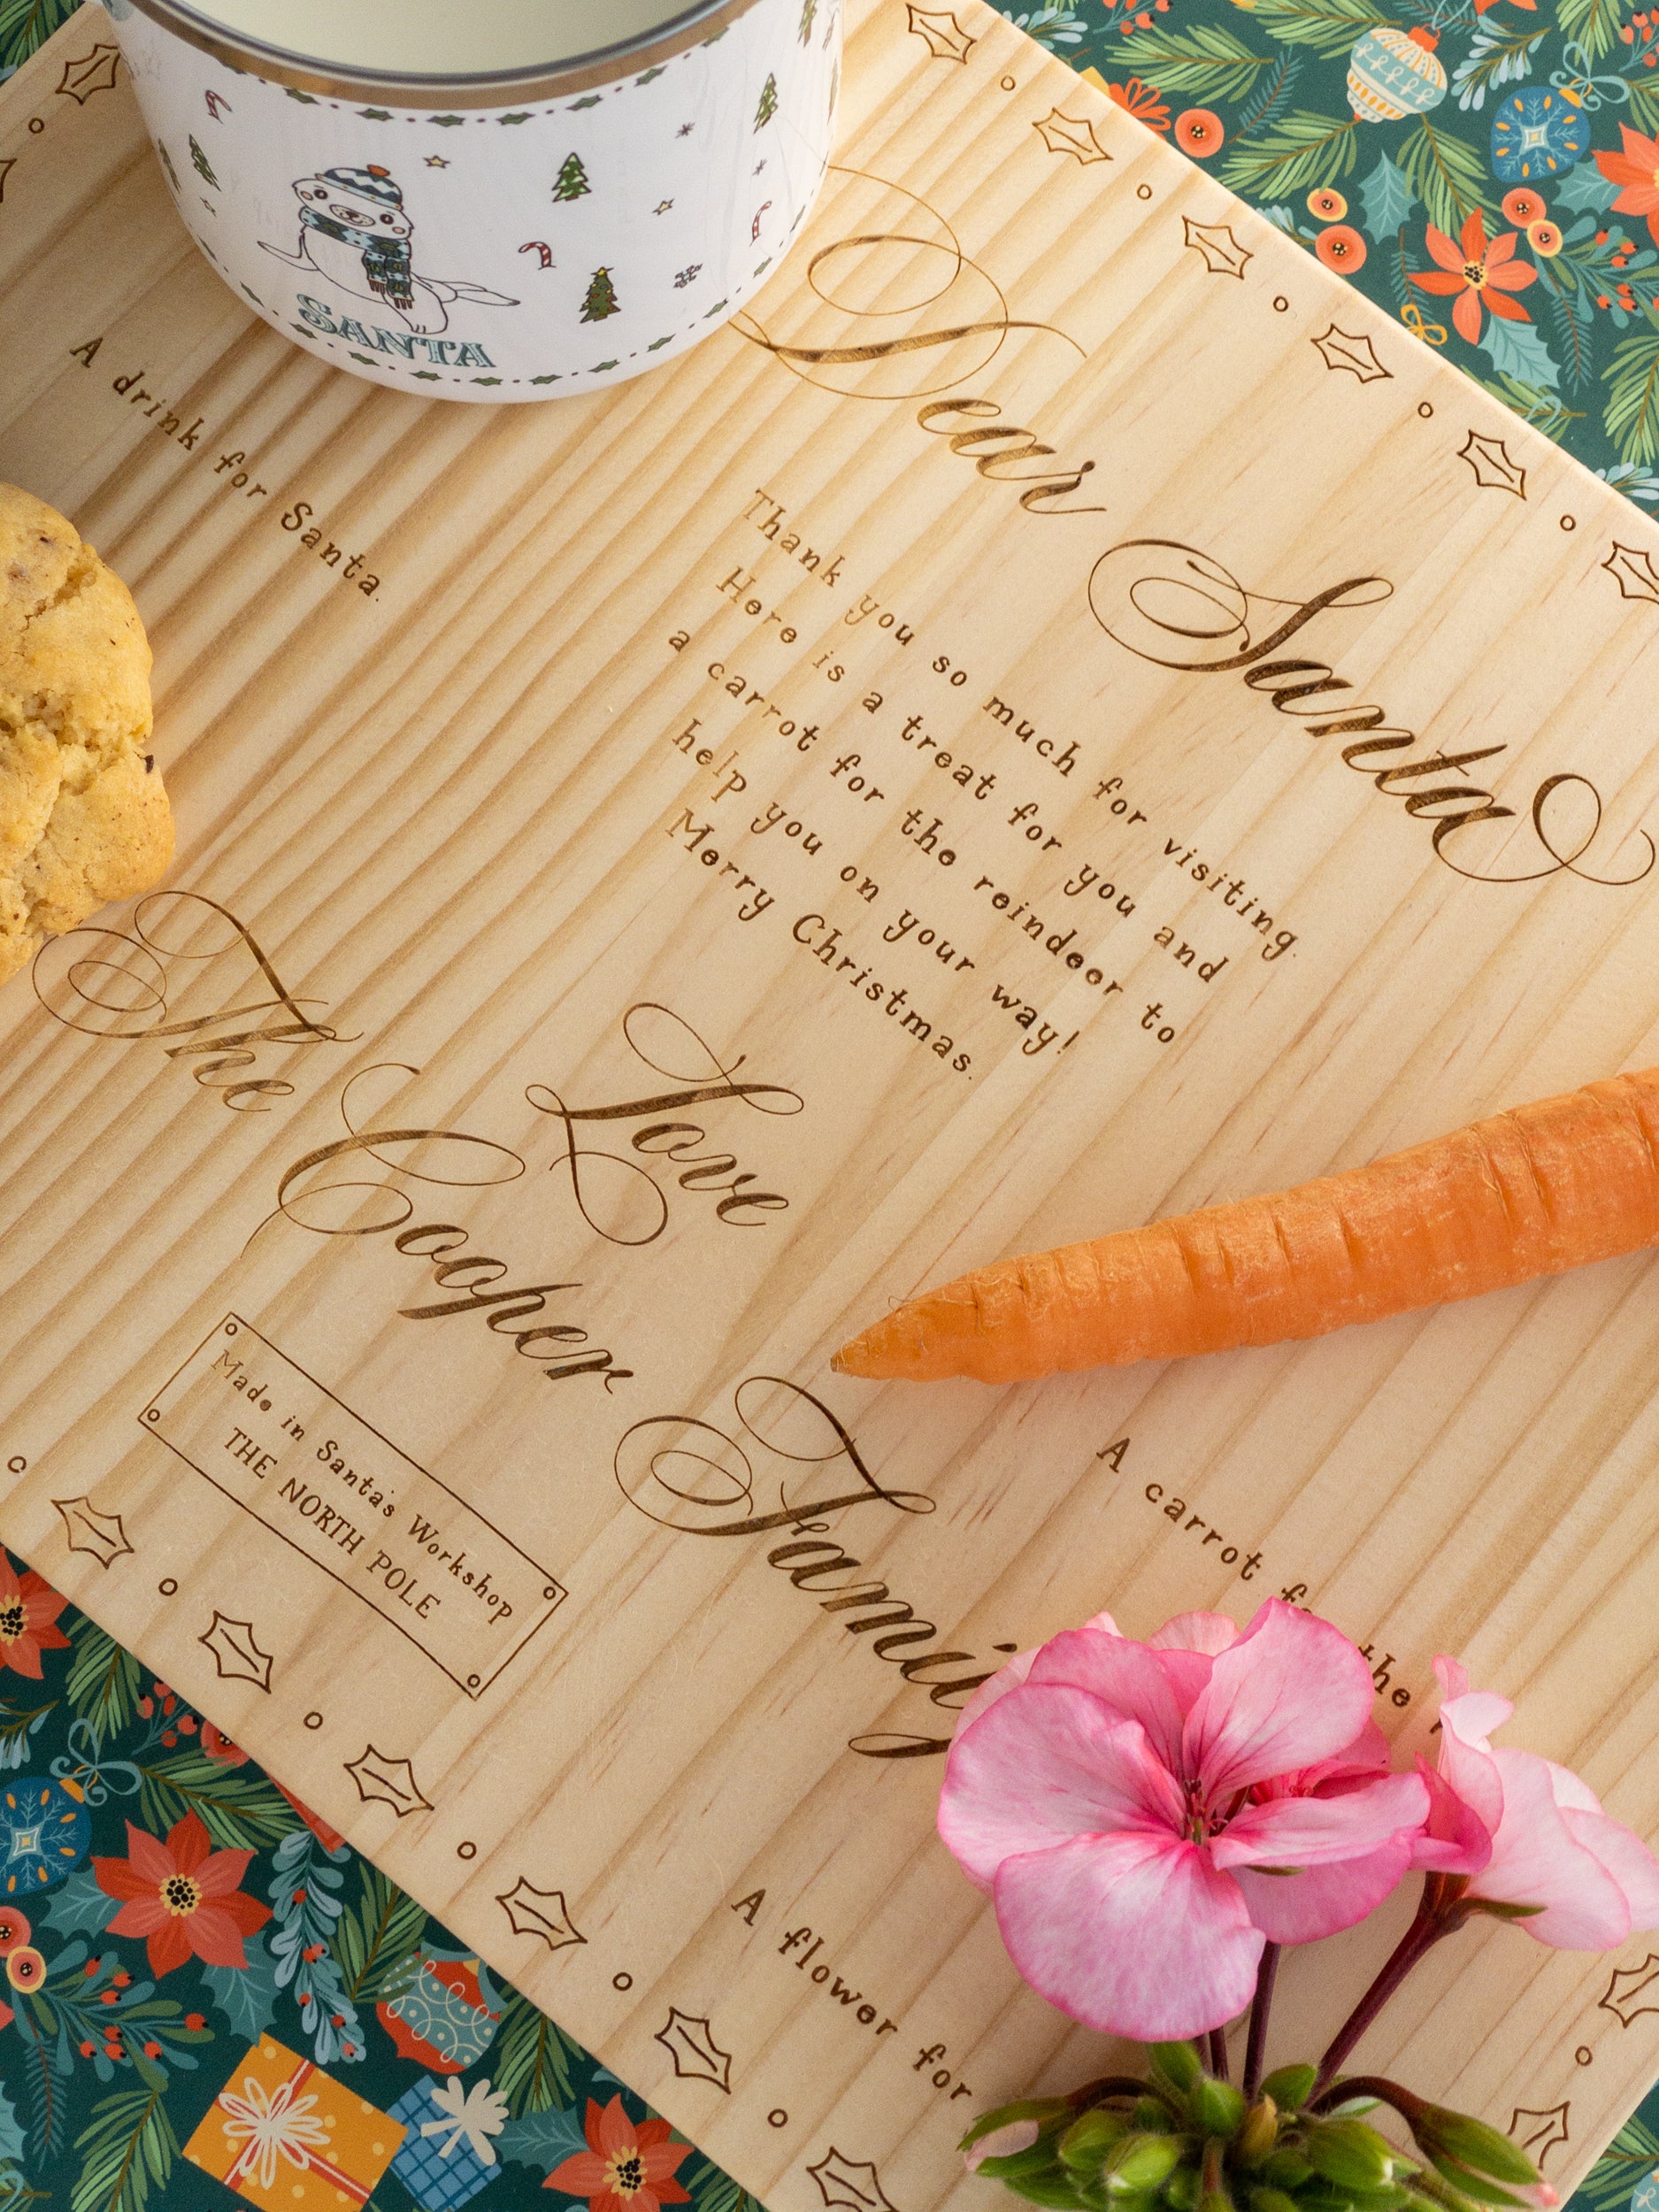 SANTA
A drink for Santa.
Dear Santa
Thank you so much for visiting.
Here is a treat for you and
a carrot for the reindeer to
help you on your way!
Merry Christmas.
Love
The Cooper Family
Made in Santa's Workshop
THE NORTH POLE
A carrot for the
A flower for